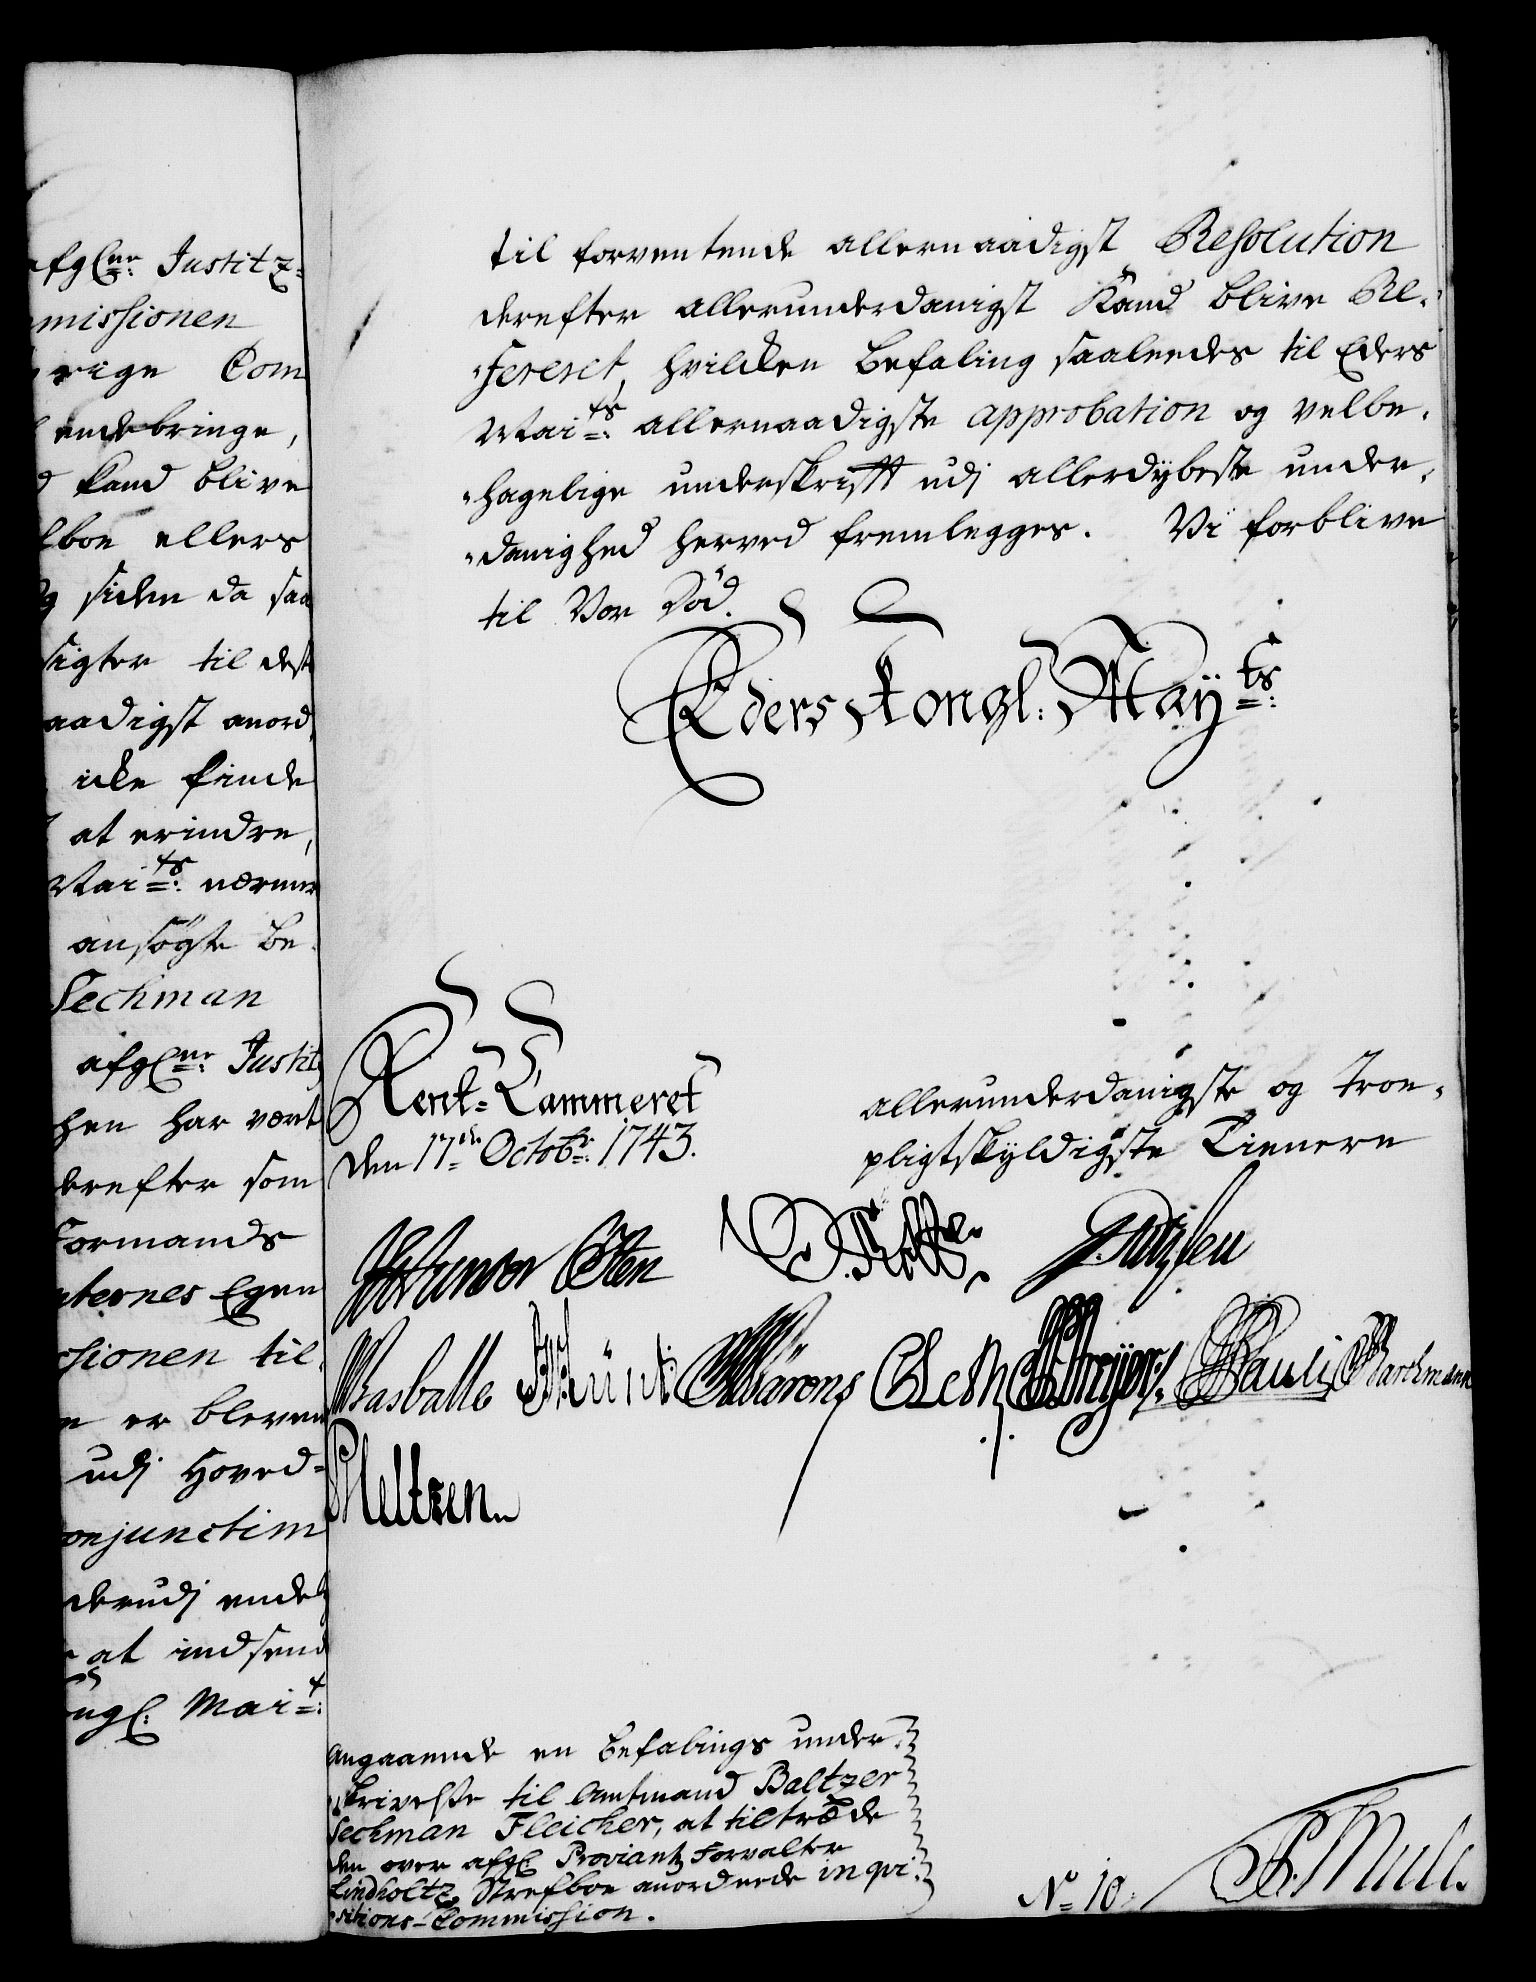 afgl:ne: Justitz-
missionen
rige Com
endebringe,
kand blive
boe ellers
siden da saa
sigter til dest
aadigst anord,
icke finde
at erindre,
Mai:ts: nærmer
ansögte be-
Sechman
afgl:ne: Justitz
hen har vært
derefter som
Formands
nternes Egen
sionen til,
er bleven
udj Hoved-
onjunctim
derudj endel
at indsend
ngl: Mai:t:
til forventende allernaadigst Resolution
derefter allerunderdanigst kand blive Re-
fereret, hvilcken Befaling saaleedes til Eders
Mai:ts: allernaadigste approbation og velbe-
hagelige underskrifft udj allerdybeste under-
danighed herved fremlegges. Vi forblive
til Vor Død.
Eders Kongl: May:ts:
Rent-Cammeret
den 17:de Octobr: 1743.
allerunderdanigste og troe-
pligtskyldigste Tienere
Basballe Münt Wärens CLeth Pauli Barchmann
Meltzen
Angaaende en Befalings under-
skrivelse til Amtmand Baltzer
Sechman Fleicher, at tiltræde
den over afgl: Proviant Forvalter
Lindholtz Sterfboe anordnede inqvi-
sitions-Commission.
No 10. Muli